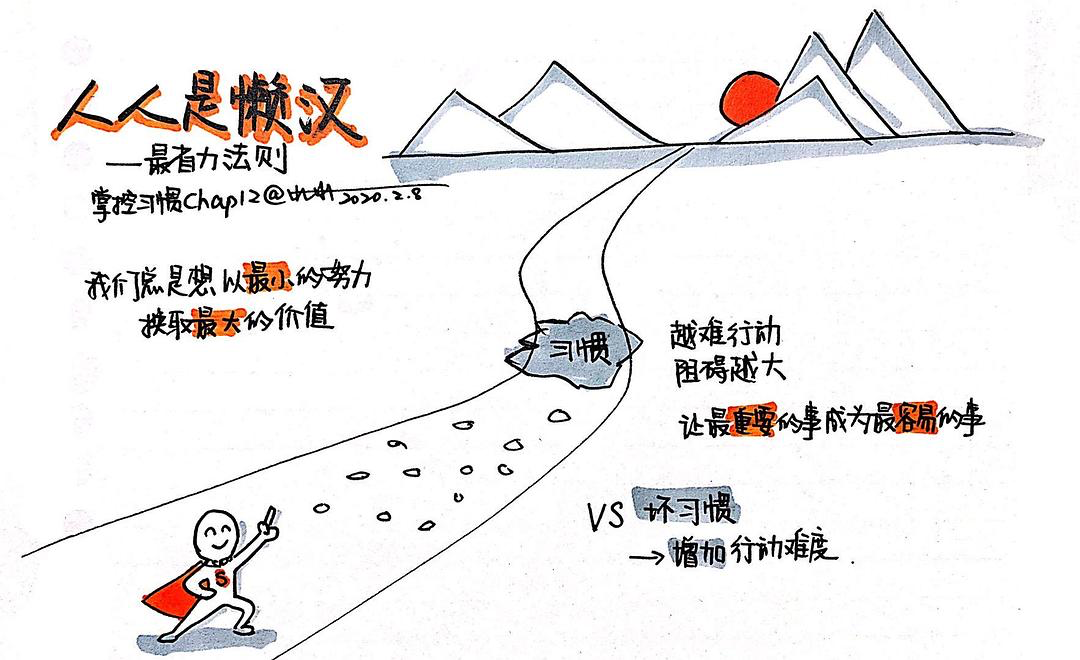 人人是懒汉
—最省力法则
掌控习惯Chap12@ 2020.2.8
我们总是想以最小的努力
换取最大的价值
习惯
越难行动
阻碍越大
让最重要的事成为最容易的事
VS 坏习惯
→增加行动难度.
S